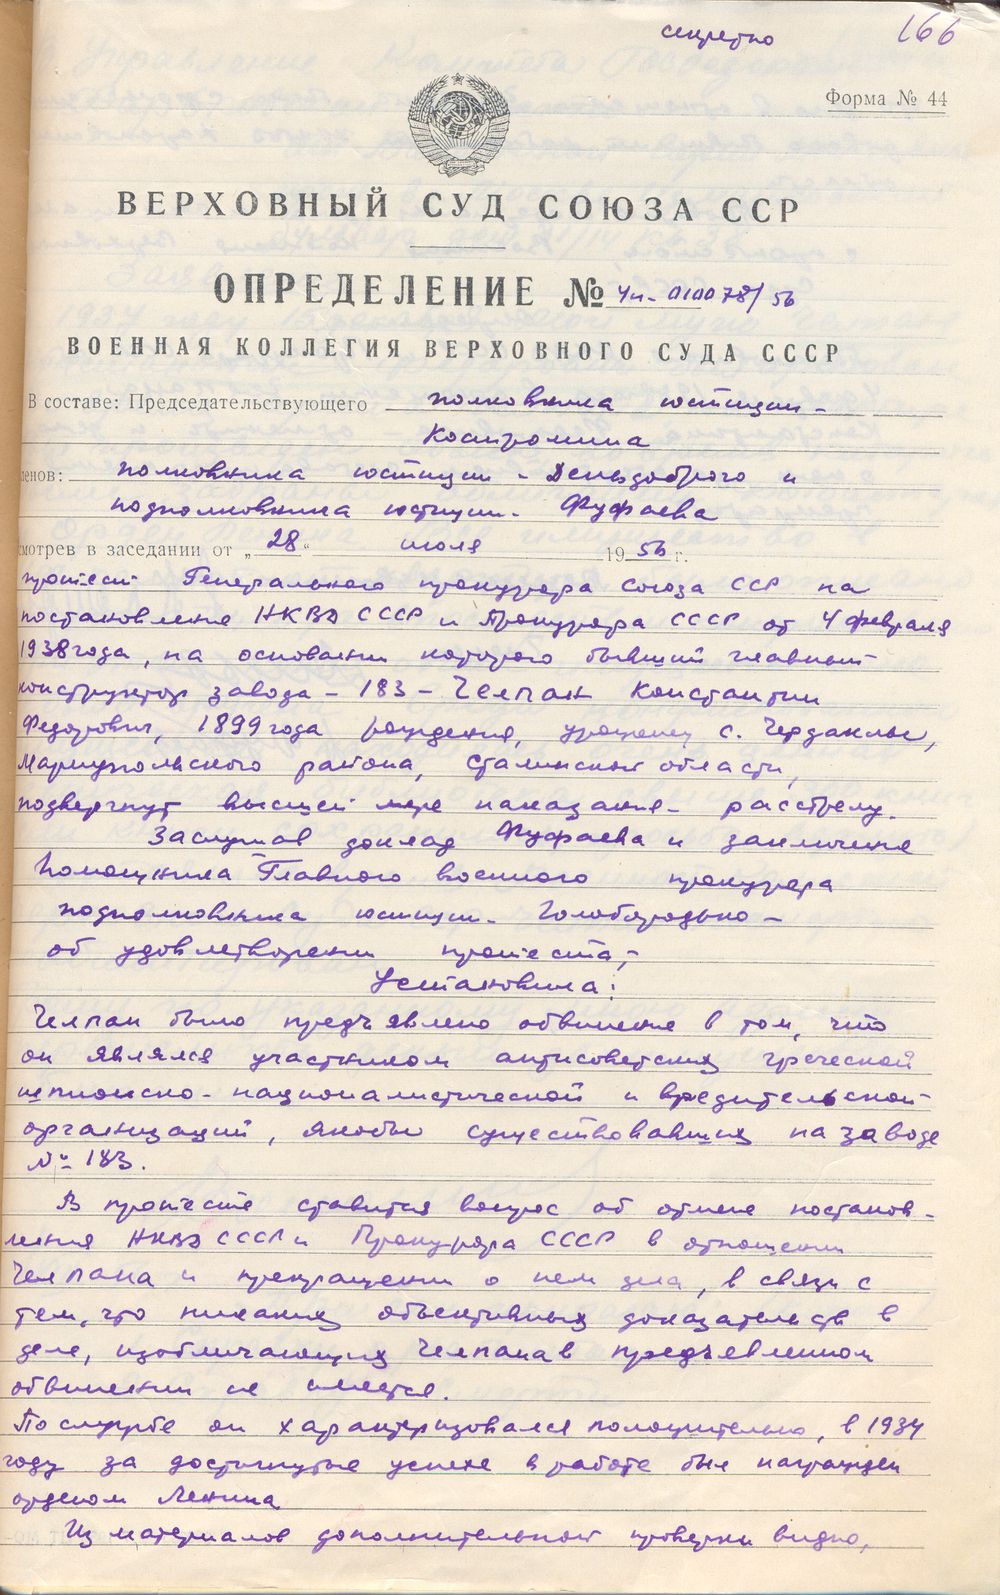 секретно
166
Форма № 44
ВЕРХОВНЫЙ СУД СОЮЗА ССР
ОПРЕДЕЛЕНИЕ № 4н-010078/56
ВОЕННАЯ КОЛЛЕГИЯ ВЕРХОВНОГО СУДА СССР
В составе: Председательствующего полковника юстиции –
Костромина
ленов: полковника юстиции – Деньдоброго и
подполковника юстиции – Фуфаева
смотрев в заседании от „28“ июля 1956 г.
протест Генерального прокурора Союза ССР на
постановление НКВД СССР и Прокурора СССР от 4 февраля
1938 года, на основании которого бывший главный
конструктор завода – 183 – Челпан Константин
Федорович, 1899 года рождения, уроженец с. Чердаклы,
Мариупольского района, Сталинской области,
подвергнут высшей мере наказания – расстрелу.
Заслушав доклад Фуфаева и заключение
Помощника Главного военного прокурора
подполковника юстиции – Голобородько –
об удовлетворении протеста, –
Установила:
Челпан было предъявлено обвинение в том, что
он являлся участником антисоветских греческой
шпионско-националистической и вредительской
организаций, якобы существовавших на заводе
№ 183.
В протесте ставится вопрос об отмене постанов-
ления НКВД СССР и Прокурора СССР в отношении
Челпана и прекращении о нем дела, в связи с
тем, что никаких объективных доказательств в
деле, изобличающих Челпана в предъявленном
обвинении не имеется.
По службе он характеризовался положительно, в 1934
году за достигнутые успехи в работе был награжден
орденом Ленина
Из материалов дополнительной проверки видно,